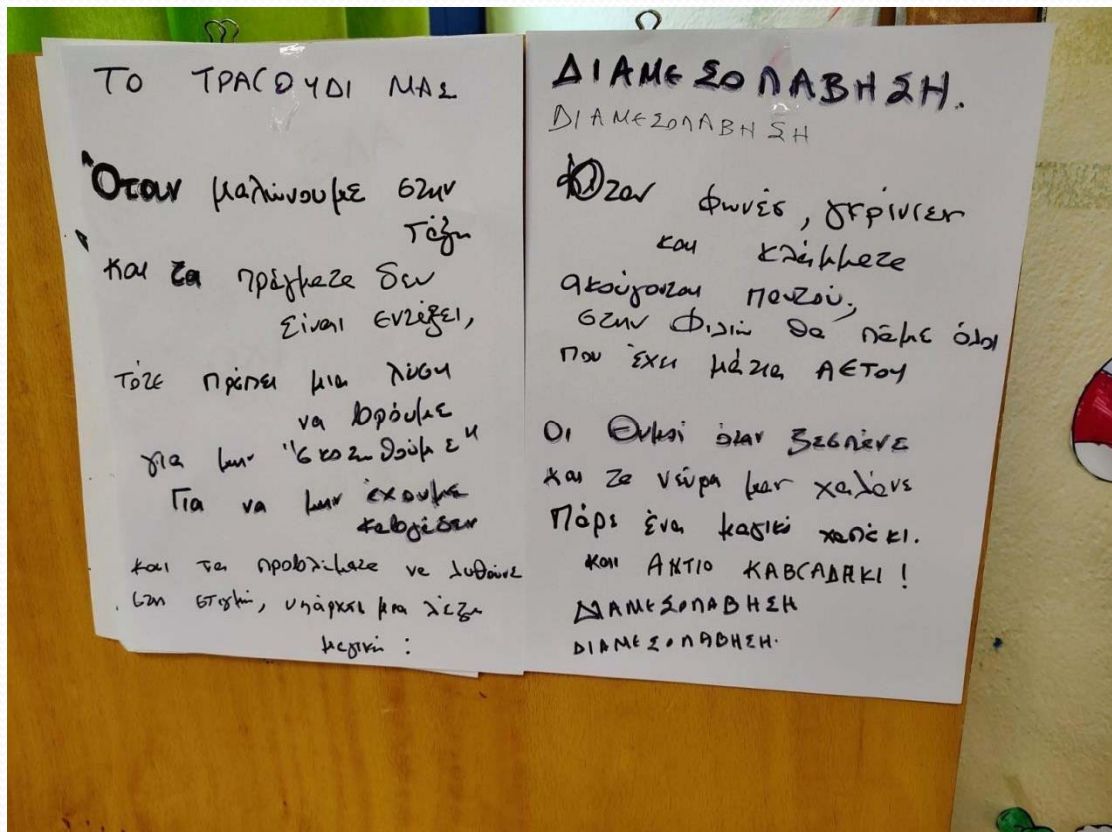 ΤΟ ΤΡΑΓΟΥΔΙ ΜΑΣ
Όταν μαλώνουμε στην
τάξη
και τα πράγματα δεν
είναι εντάξει,
τότε πρέπει μια λύση
να βρούμε
για μην "σκοτωθούμε"
Για να μην έχουμε
καβγάδες
και τα προβλήματα να λυθούνε
στη στιγμή, υπάρχει μια λέξη
μαγική :
ΔΙΑΜΕΣΟΛΑΒΗΣΗ.
ΔΙΑΜΕΣΟΛΑΒΗΣΗ
Όταν φωνές, γκρίνιες
και κλάμματα
ακούγονται παντού,
στην Φιλιώ θα πάμε όλοι
που έχει μάτια ΑΕΤΟΥ
Οι Θυμοί όταν ξεσπάνε
και τα νεύρα μας χαλάνε
Πάρε ένα μαγικό χαπάκι.
και ΑΝΤΙΟ ΚΑΒΓΑΔΑΚΙ !
ΔΙΑΜΕΣΟΛΑΒΗΣΗ
ΔΙΑΜΕΣΟΛΑΒΗΣΗ.